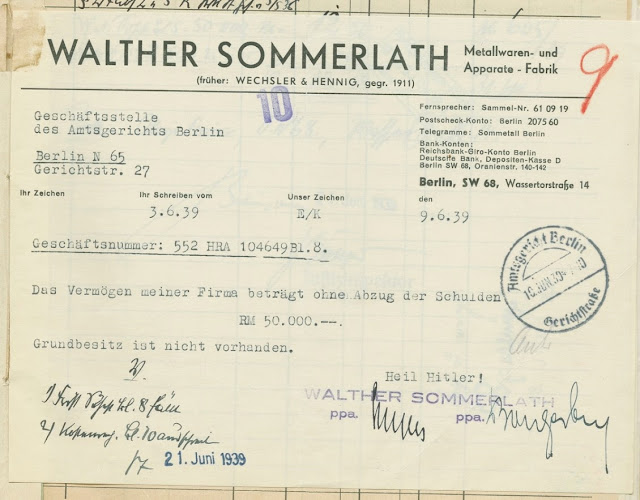 WALTHER SOMMERLATH
Metallwaren- und
Apparate - Fabrik
(früher: WECHSLER & HENNIG, gegr. 1911)
9
10
Geschäftsstelle
des Amtsgerichts Berlin
Berlin N 65
Gerichtstr. 27
Fernsprecher: Sammel-Nr. 61 09 19
Postscheck-Konto: Berlin 2075 60
Telegramme: Sommetall Berlin
Bank-Konten:
Reichsbank-Giro-Konto Berlin
Deutsche Bank, Depositen-Kasse D
Berlin SW 68, Oranienstr. 140-142
Berlin, SW 68, Wassertorstraße 14
Ihr Zeichen Ihr Schreiben vom Unser Zeichen den
3.6.39 E/K 9.6.39
Geschäftsnummer: 552 HRA 104649Bl.8.
Amtsgericht Berlin
Gerichtstraße
Das Vermögen meiner Firma beträgt ohne Abzug der Schulden
RM 50.000.--.
Grundbesitz ist nicht vorhanden.
Heil Hitler!
WALTHER SOMMERLATH
ppa. ppa.
21. Juni 1939